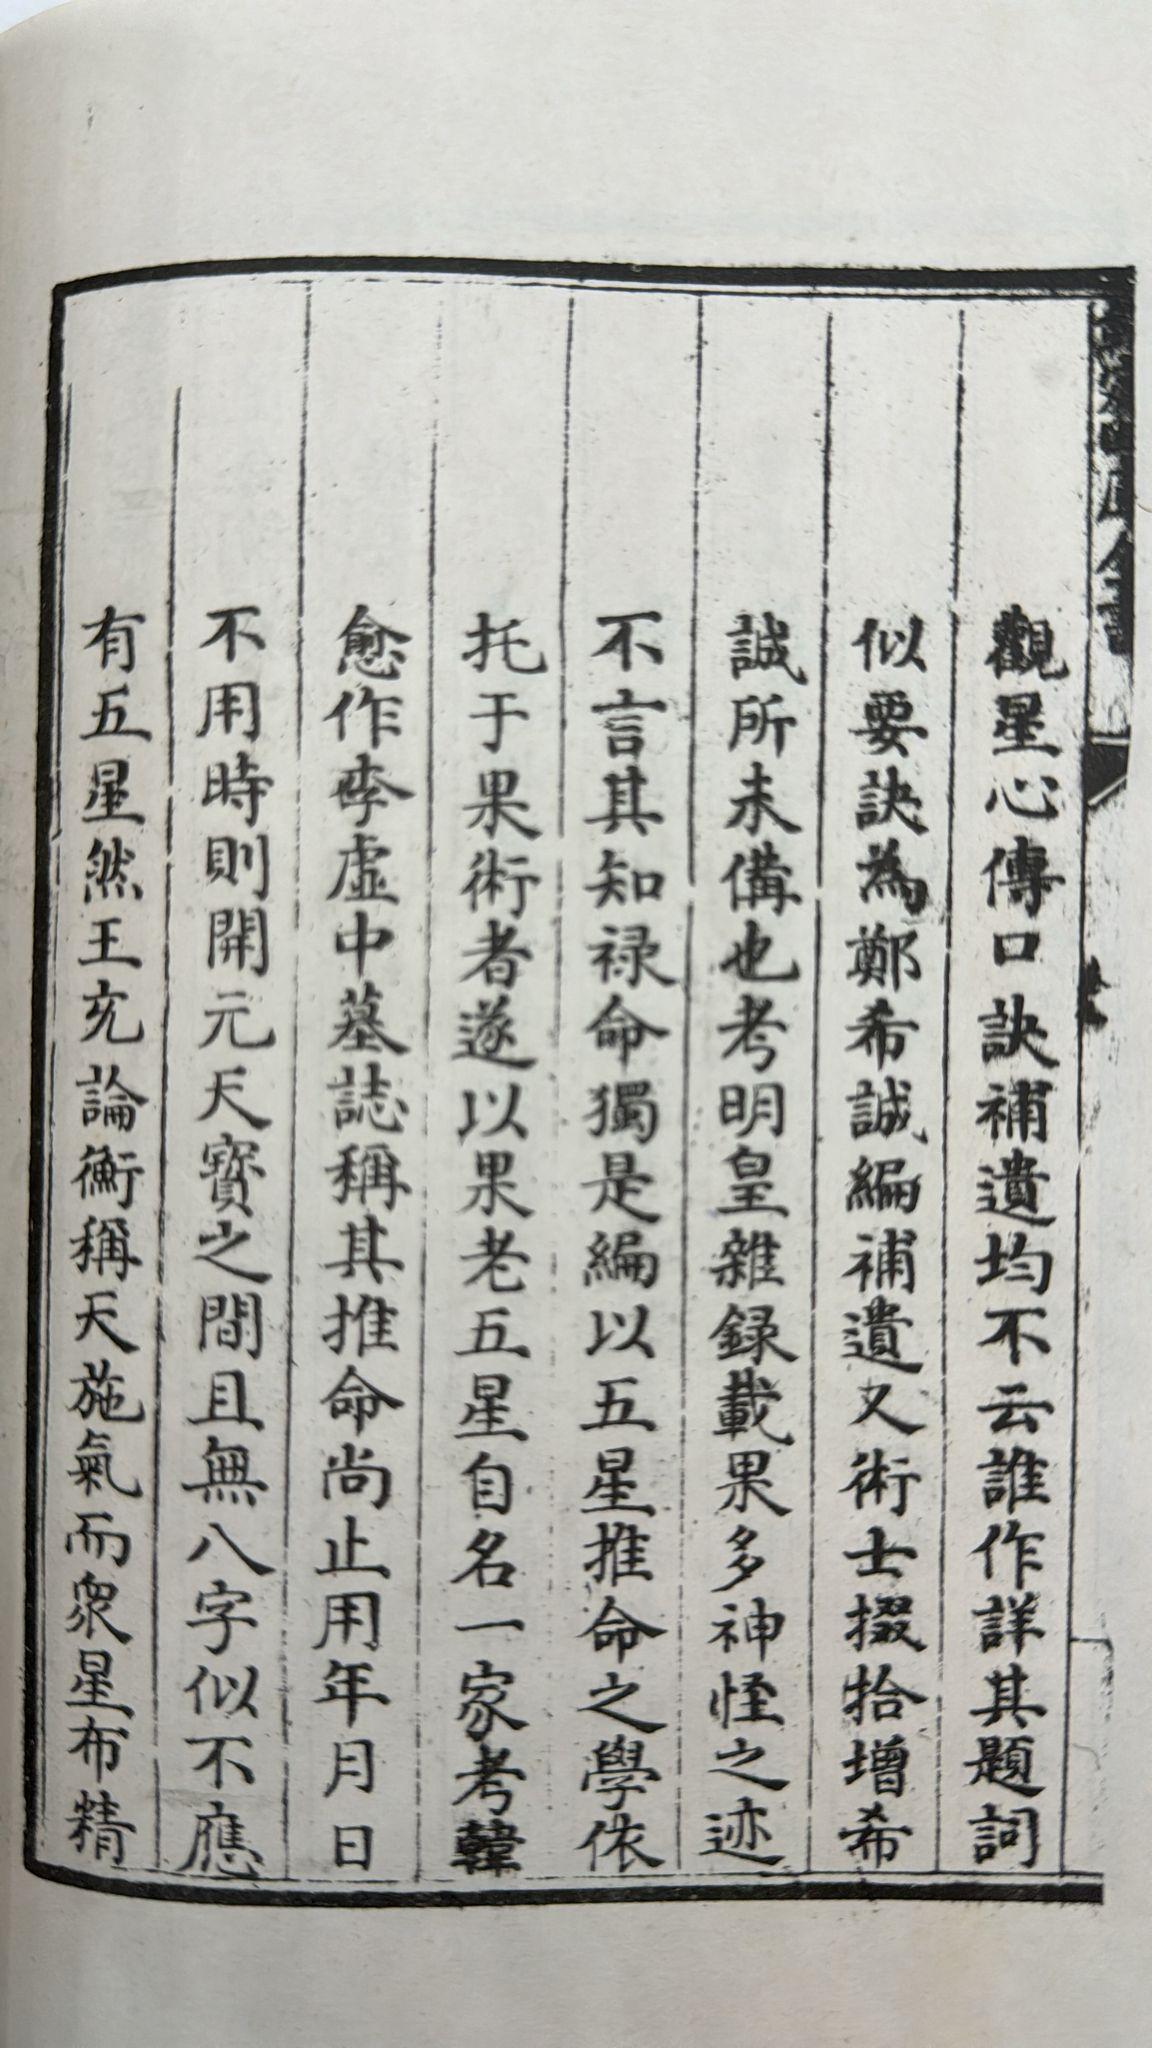 觀星心傳口訣補遺均不云誰作詳其題詞
似要訣為鄭希誠編補遺又術士掇拾增希
誠所未備也考明皇雜録載果多神怪之迹
不言其知禄命獨是編以五星推命之學依
托于果術者遂以果老五星自名一家考韓
愈作李虛中墓誌稱其推命尚止用年月日
不用時則開元天寳之間且無八字似不應
有五星然王充論衡稱天施氣而衆星布精